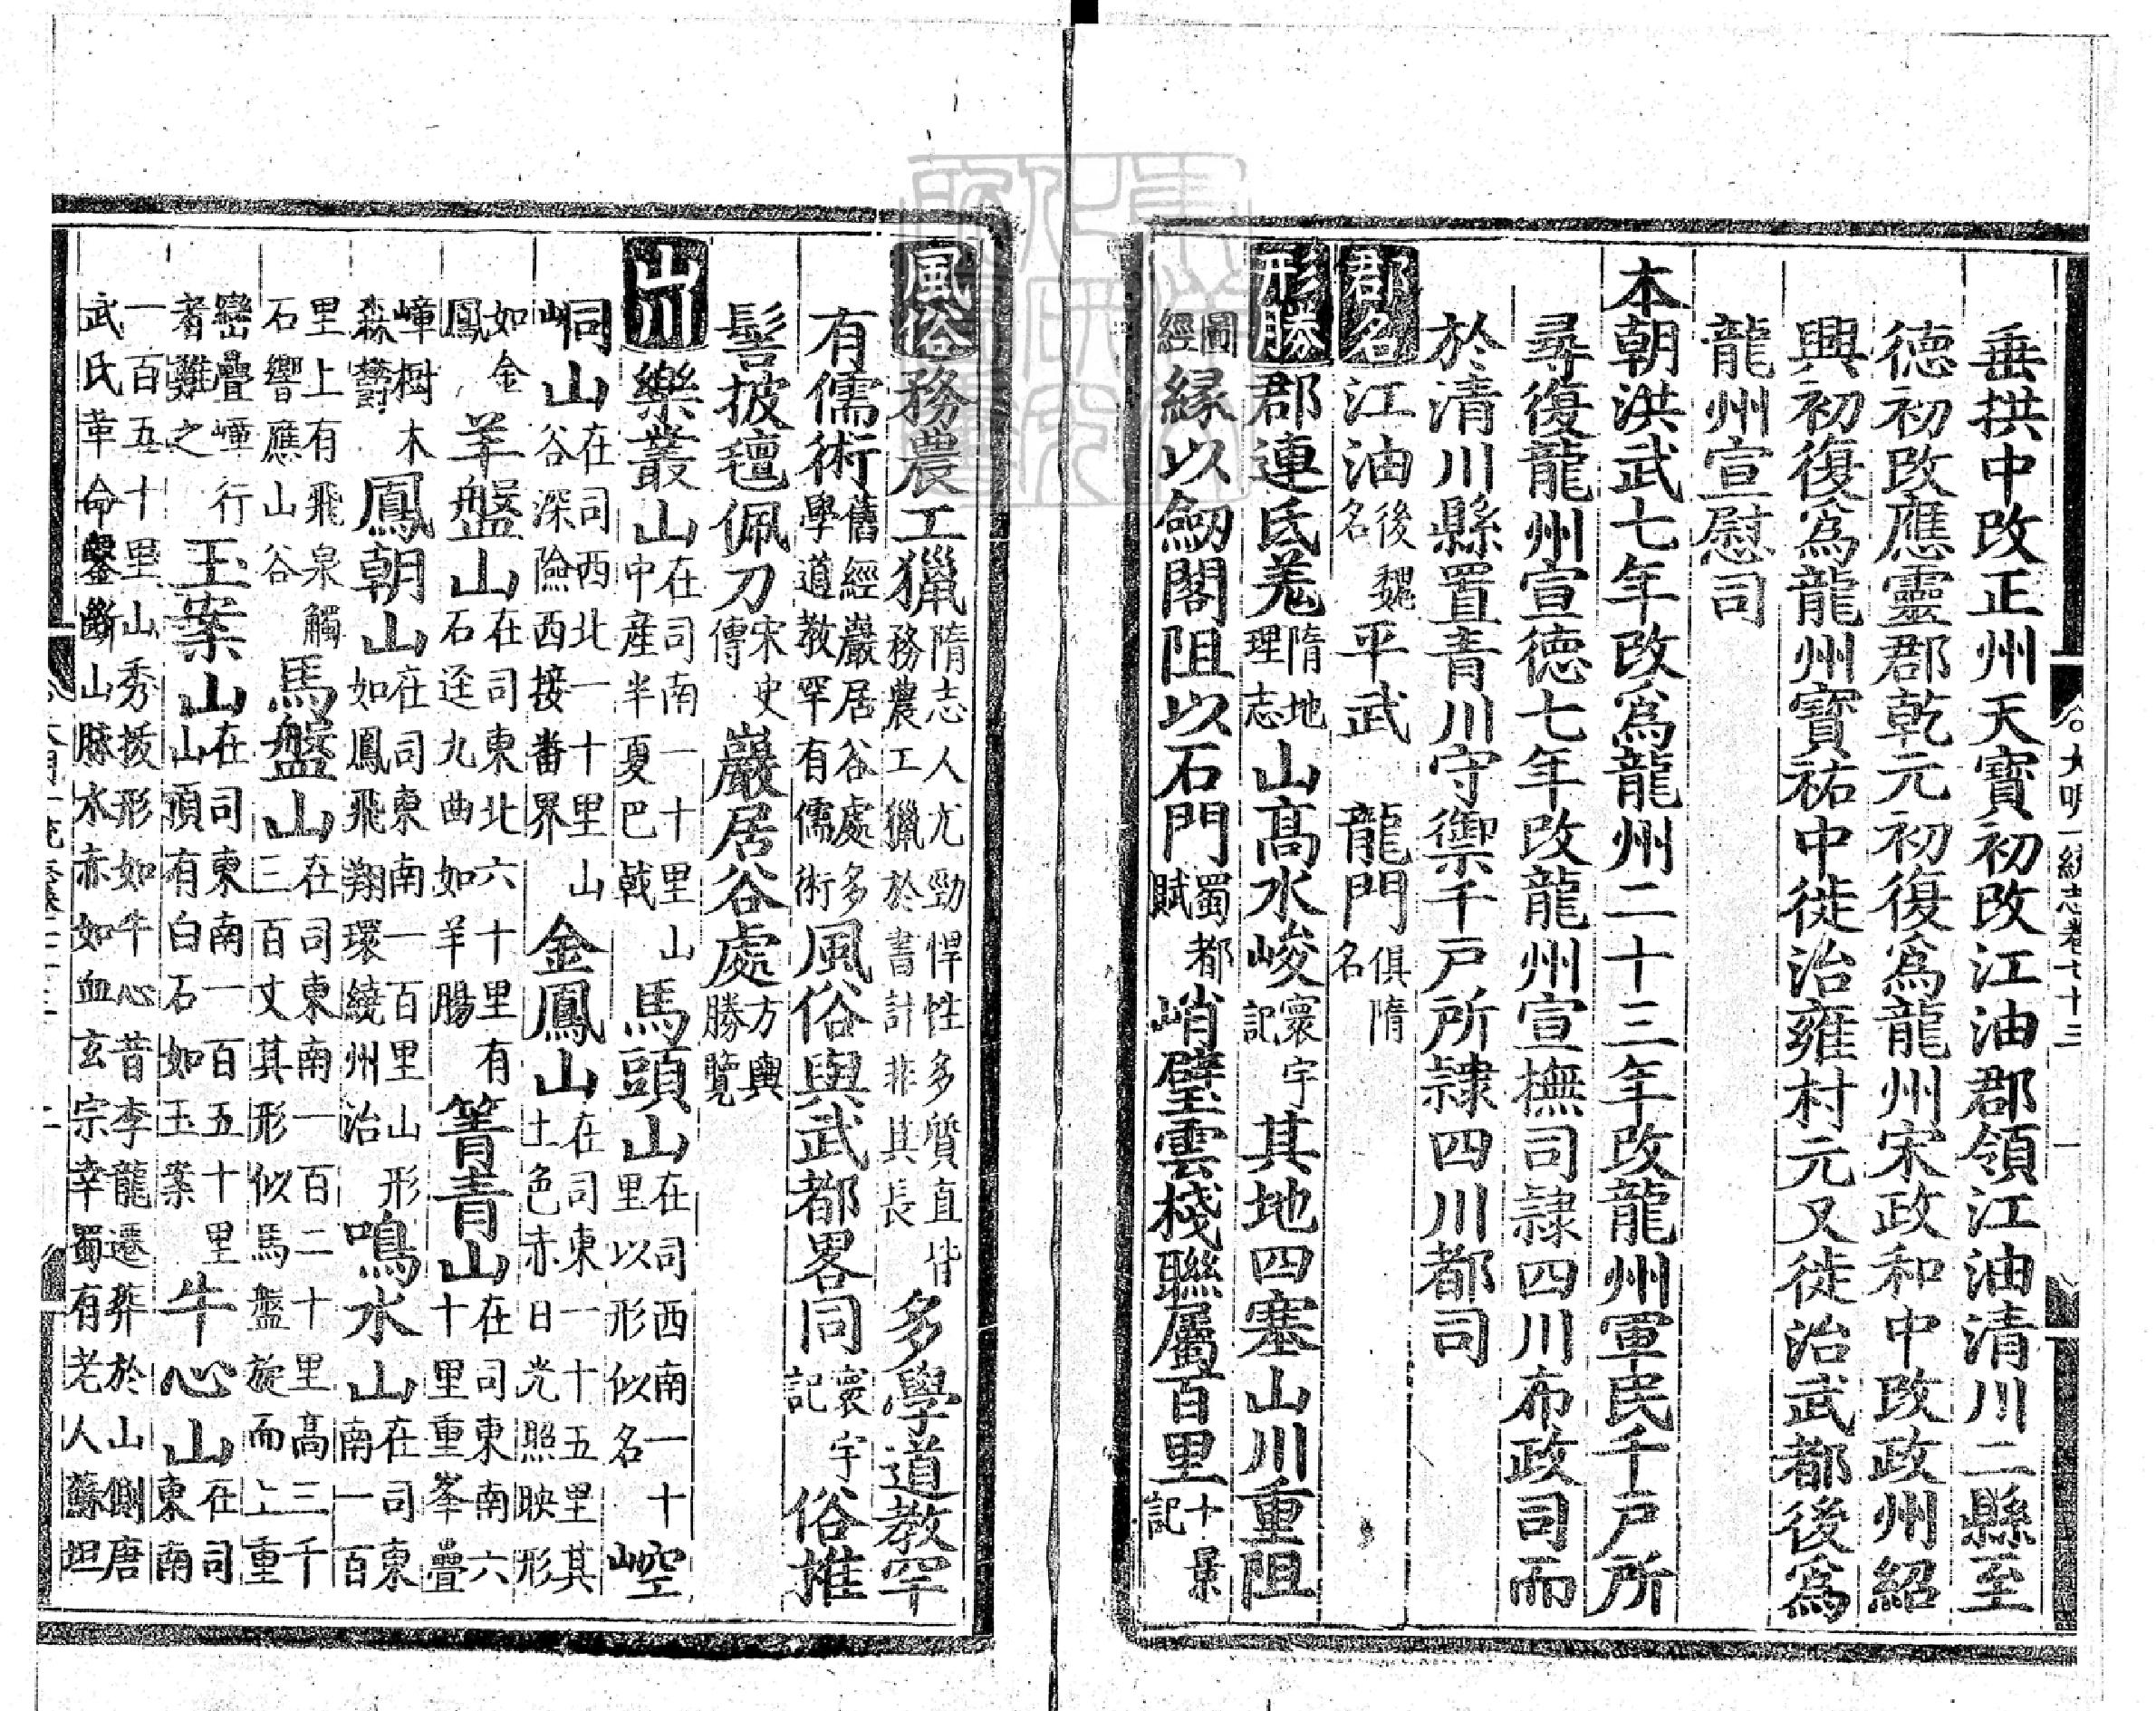 大明一統志卷七十三 一
垂拱中改正州天寶初改江油郡領江油清川二縣至
德初改應靈郡乾元初復爲龍州宋政和中改政州紹
興初復爲龍州寶祐中徙治雍村元又徙治武都後爲
龍州宣慰司
本朝洪武七年改爲龍州二十三年改龍州軍民千戸所
尋復龍州宣德七年改龍州宣撫司隷四川布政司而
於清川縣置青川守禦千戸所隷四川都司
郡名江油後魏名平武 龍門俱隋名
形勝郡連氐羌隋地理志山高水峻寰宇記其地四塞山川重阻
圖經縁以劒閣阻以石門蜀都賦峭壁雲棧聯屬百里十景記
風俗務農工獵隋志人尤勁悍性多質直皆務農工獵於書計非其長多學道教罕
有儒術舊經巖居谷處多學道教罕有儒術風俗與武都畧同寰宇記俗推
髻披氊佩刀宋史傳巖居谷處方輿勝覽
山川樂叢山在司南一十里山中産半夏巴戟馬頭山在司西南一十里以形似名崆
峒山在司西北一十里山谷深險西接番界金鳳山在司東一十五里其土色赤日光照映形
如金鳳羊盤山在司東北六十里有石逕九曲如羊腸箐青山在司東南六十里重峯疊
嶂樹木森欎鳳朝山在司東南一百里山形如鳳飛翔環繞州治鳴水山在司東南一百
里上有飛泉觸石響應山谷馬盤山在司東南一百二十里高三千三百丈其形似馬盤旋而上重
巒疊嶂行者難之玉案山在司東南一百五十里山頂有白石如玉案牛心山在司東南
一百五十里山秀㧞形如牛心昔李龍遷葬於山側唐武氏革命鑿斷山脉水赤如血玄宗幸蜀有老人蘇坦
二